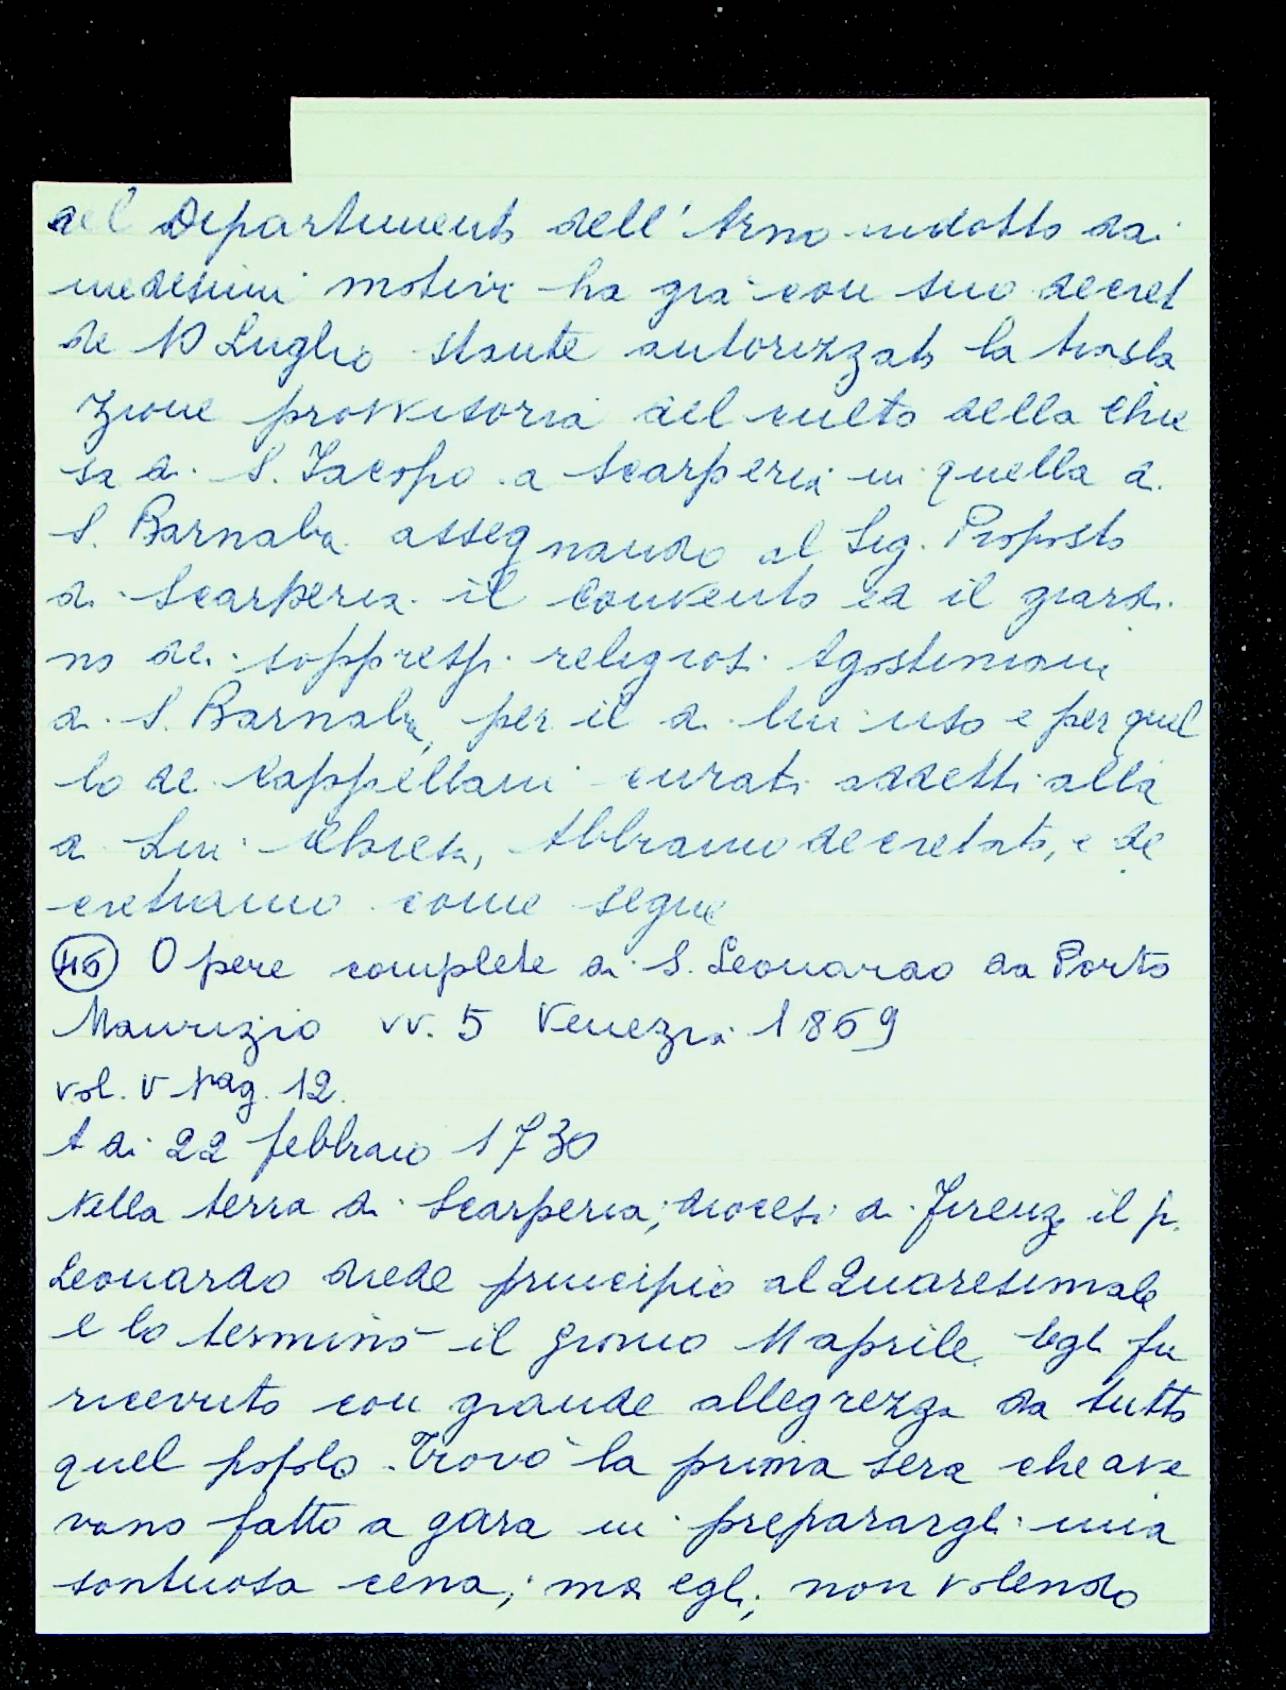 del Dipartimento dell'Arno indotto dai
medesimi motivi ha già con suo decret
de 10 Luglio stante autorizzato la trasla
zione provvisoria del culto della Chie
sa di S. Iacopo a Scarperia in quella di
S. Barnaba assegnando al Sig. Proposto
di Scarperia il Convento ed il giardi
no dei soppressi religiosi Agostiniani
di S. Barnaba, per il di lui uso e per quel
lo de Cappellani curati addetti alla
di Lui Chiesa, Abbiamo decretato, e de
cretiamo come segue
Opere complete di S. Leonardo da Porto
Maurizio vv. 5 Venezia 1869
vol. V pag. 12.
A di 22 febbraio 1730
Nella terra di Scarperia, diocesi di Firenze il p.
Leonardo diede principio al Quaresimale
e lo terminò il giorno 11 aprile. Egli fu
ricevuto con grande allegrezza da tutto
quel popolo. Trovò la prima sera che ave
vano fatto a gara in preparargli una
sontuosa cena; ma egli, non volendo